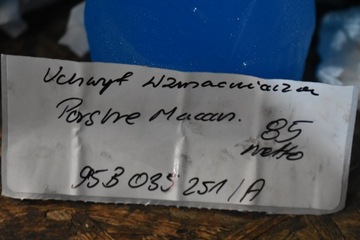 Uchwyt Wzmacniacza
Porshe Macan.
85
netto
95B 035 251/A